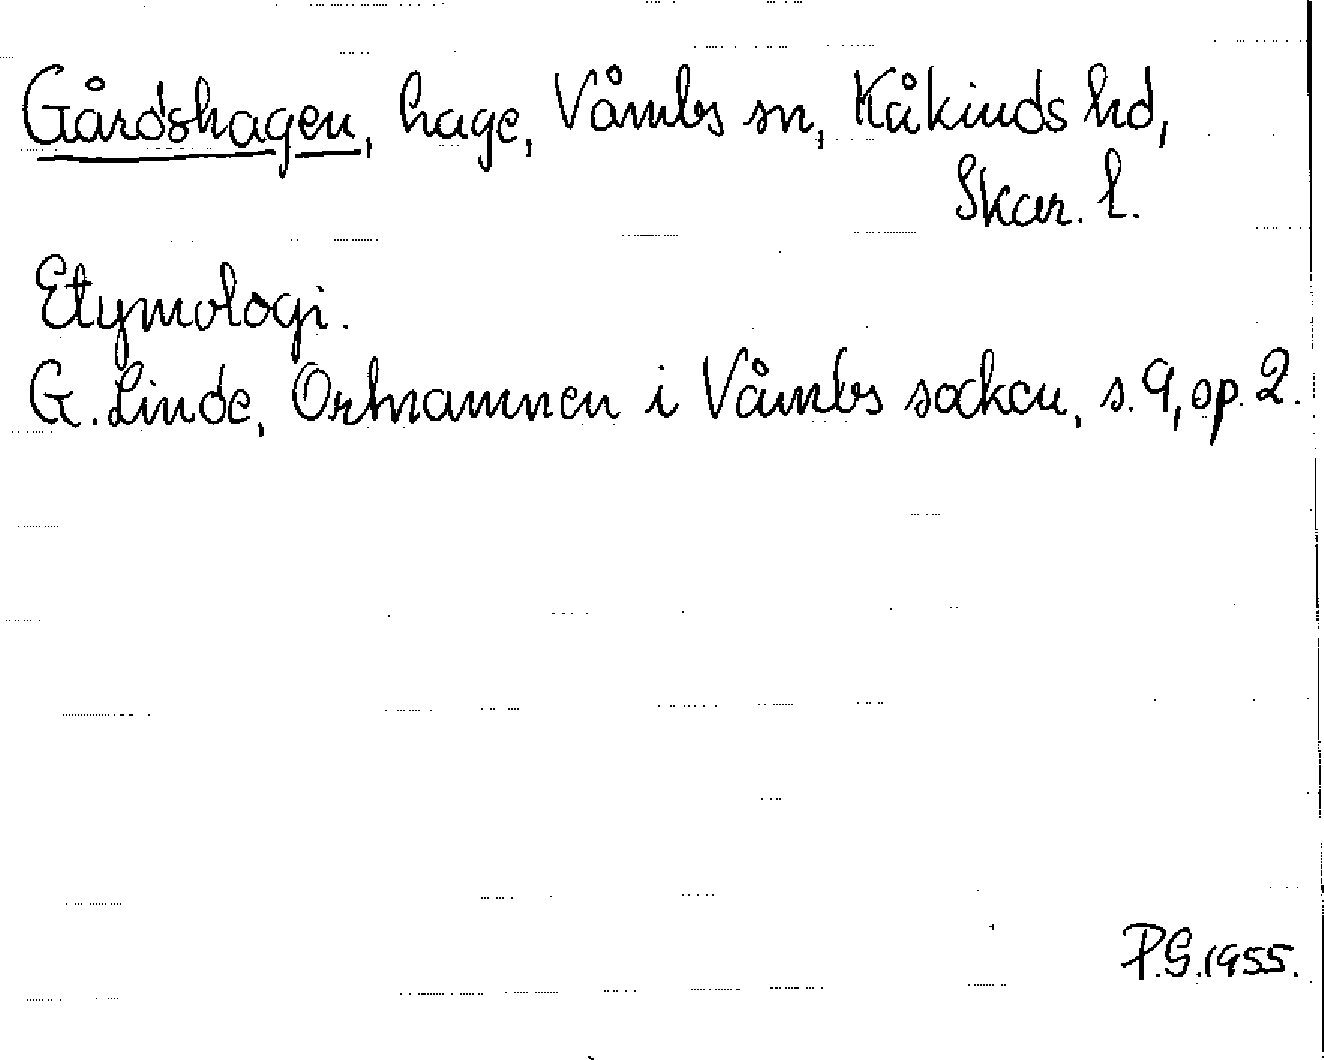 Gårdshagen, hage, Våmbs sn, Kåkinds hd,
Skar. l.
Etymologi.
G. Linde, Ortnamnen i Våmbs socken, s. 9, sp. 2.
P.G. 1955.